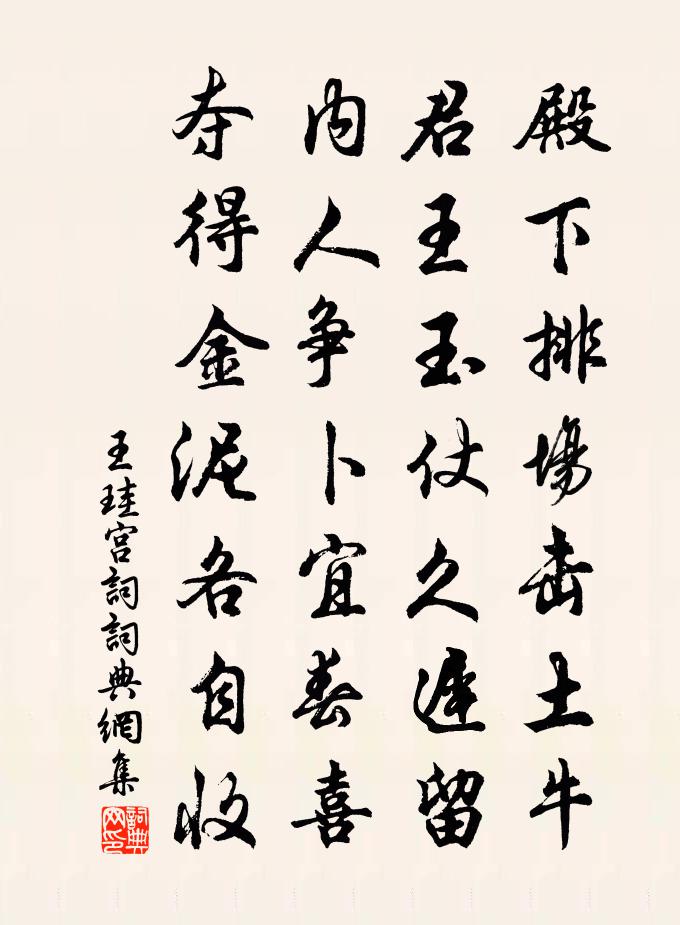 殿下排場击土牛
君王玉仗久遲留
内人争卜宜春喜
夺得金泥各自收
王珪宫詞詞典網集
詞典
网印